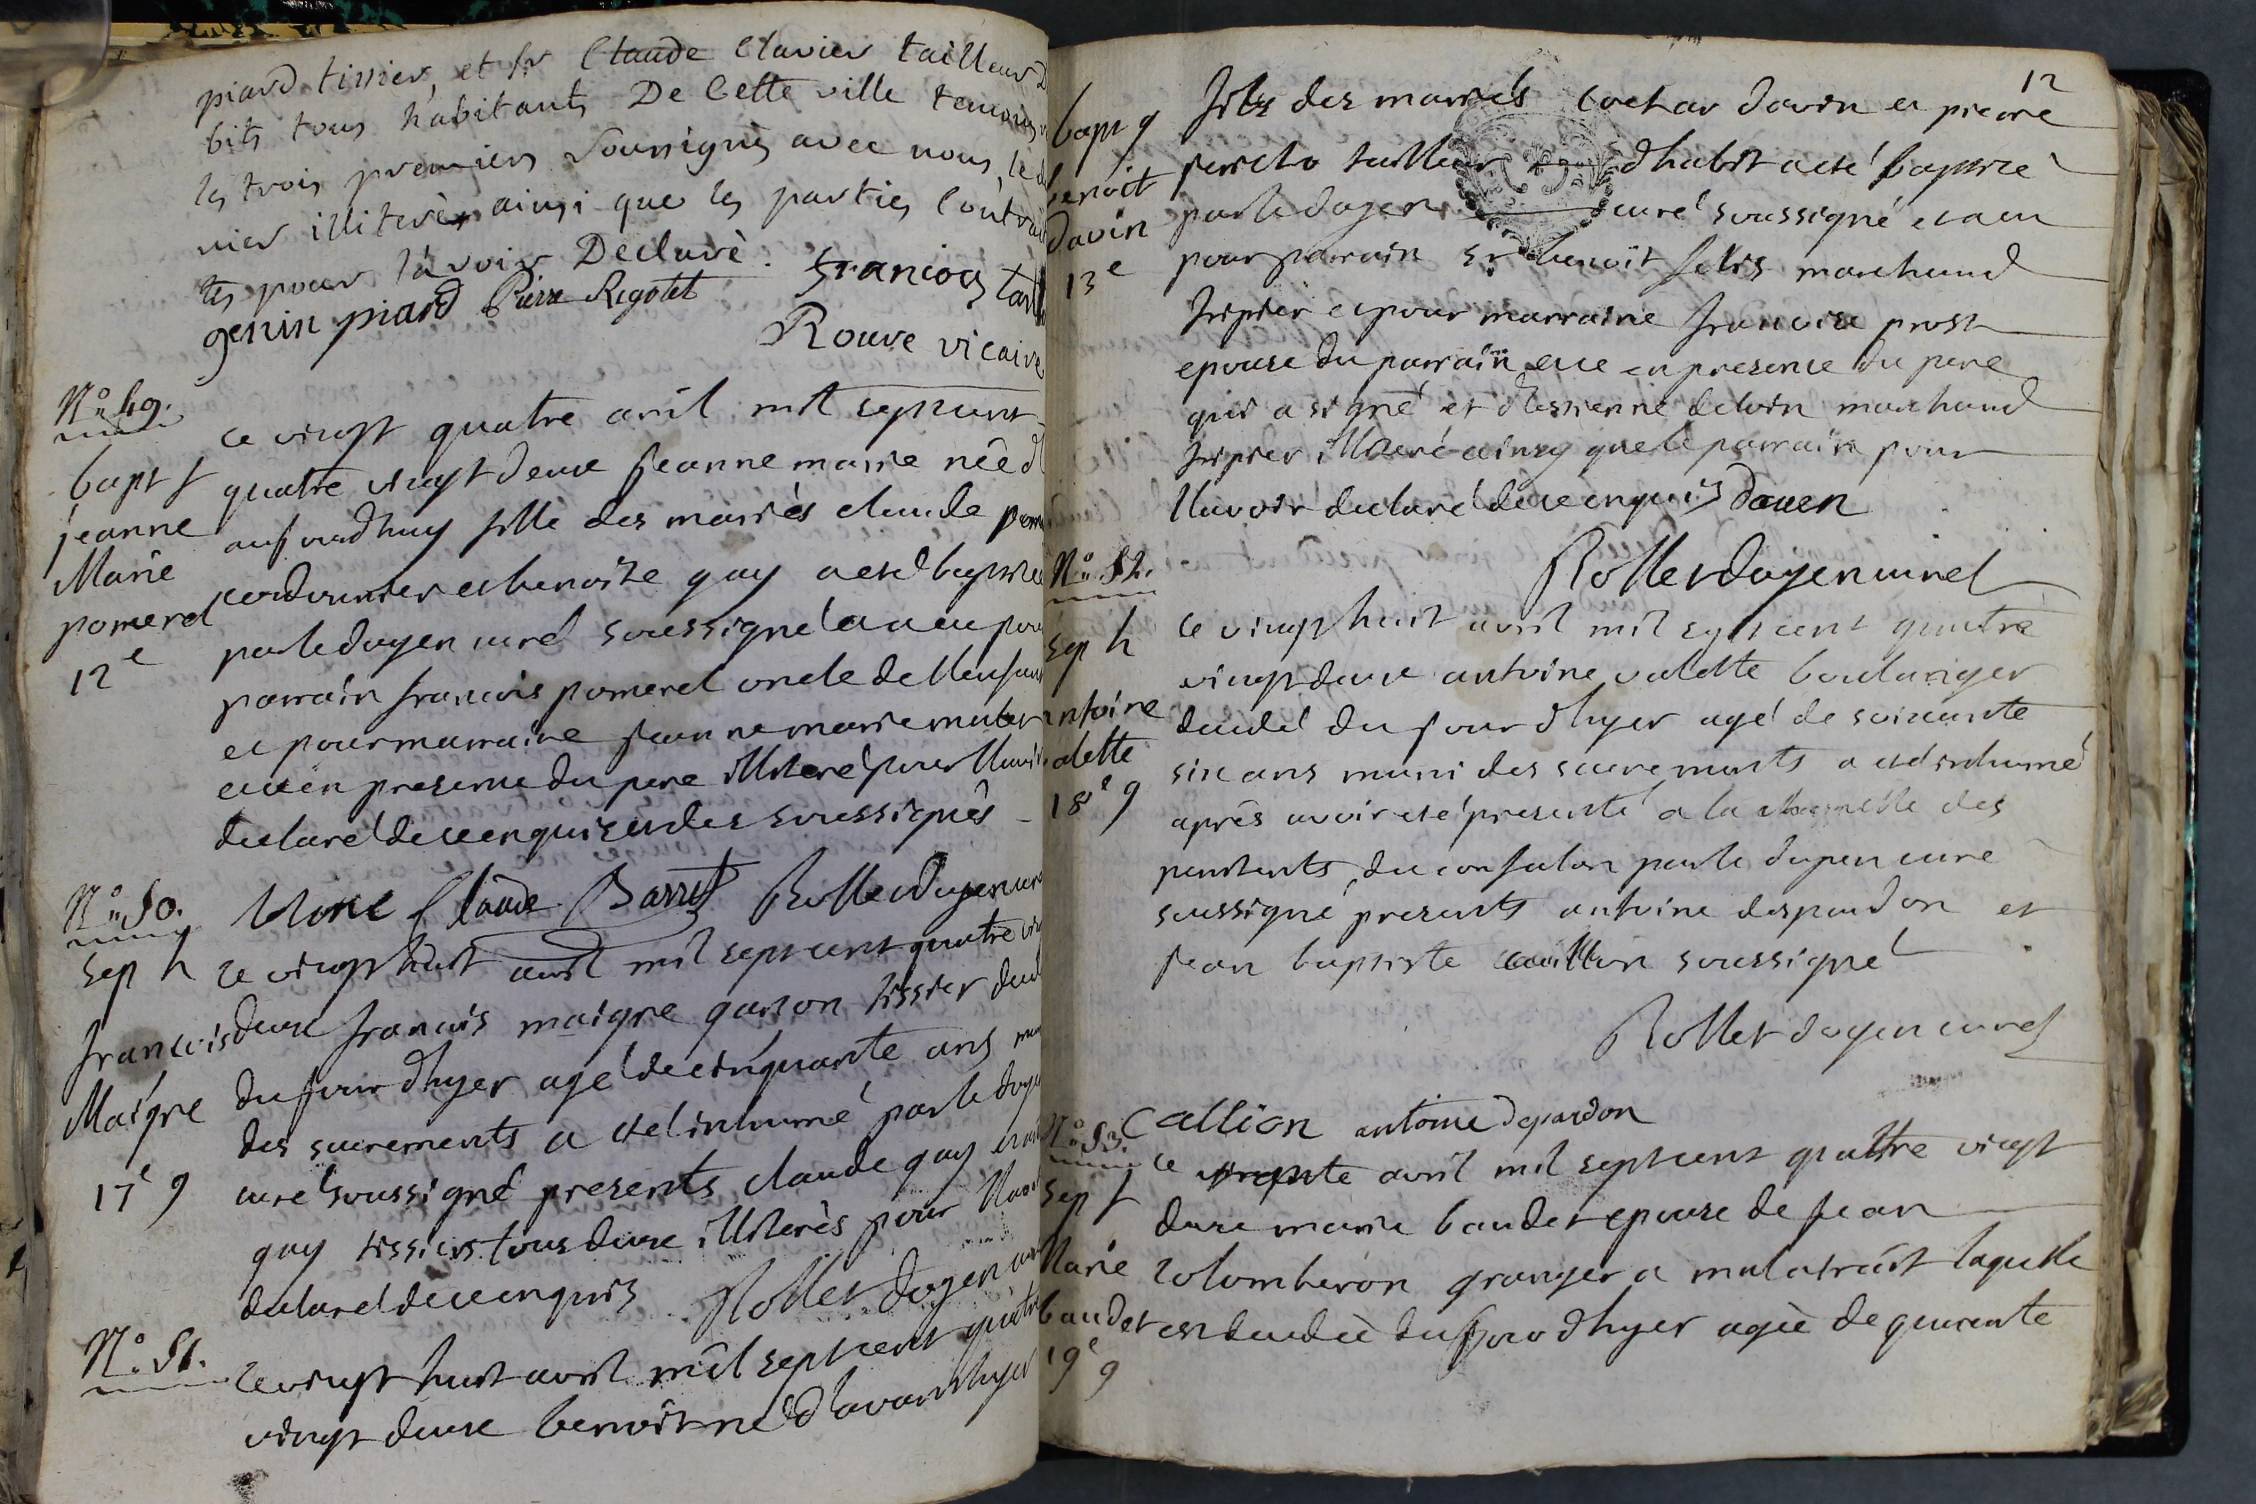 piard tissier, et sr Claude Clavier tailleur d
bits tous habitants De Cette ville temoins
les trois premiers Soussignés avec nous, le d
nier illiterès ainsi que les parties Contrac
tes pour lavoir Declaré.
genin piard Pierre Rigotet francois
Rouve vicaire
N° 49.
bapt f
jeanne
Marie
pomerel
12e
ce vingt quatre avril mil sept cent
quatre vingt deux jeanne marie née d
aujourdhuy fille des mariès claude pom
cordonnier et benoite guy a eté baptisée
par le doyen curé soussigné a eu pour
parrain francois pomerel oncle de lenfant
et pour marraine jeanne marie
eu en presence du pere illiteré pour lavoir
declaré de ce enquis et des soussignés
Claude Barret Rollet doyen curé
N° 50.
sep h
francois
Maigre
17e 9
ce vingt huit avril mil sept cent quatre vin
deux francois maigre garson tissier decedé
du jour dhyer agé de cinquante ans mu
des sacrements a eté inhumé par le doyen
curé soussigné presents claude guy
guy tissiers tous deux illiterés pour lavoir
declaré de ce enquis Rollet doyen curé
N° 51.
ce vingt huit avril mil sept cent quatre
vingt deux benoit né d'avant hyer
12
bapt g
benoit
davin
13e
fils des mariés davin et pierre
tailleur dhabit a eté baptisé
par le doyen curé soussigné et a eu
pour parrain sr benoit felis marchand
fripier et pour marraine francoise prost
epouse du parrain eue en presence du pere
qui a signé et d'estienne delorin marchand
fripier illiteré ainsy que le parrain pour
lavoir declaré de ce enquis davin
Rollet doyen curé
N° 52.
sep h
antoine
valette
18e 9
ce vingt huit avril mil sept cent quatre
vingt deux antoine valette boulanger
decedé du jour dhyer agé de soixante
six ans muni des sacrements a eté inhumé
aprês avoir eté presenté a la chapelle des
penitents du confalon par le doyen curé
soussigné presents antoine despardon et
jean baptiste caillion soussigné
Rollet doyen curé
Callion antoine depardon
N° 53.
sep f
Marie
baudet
19e 9
ce trente avril mil sept cent quattre vingt
deux marie baudet epouse de jean
colomberon granger a malatrait laquelle
est decedée du jour dhyer agée de quarente